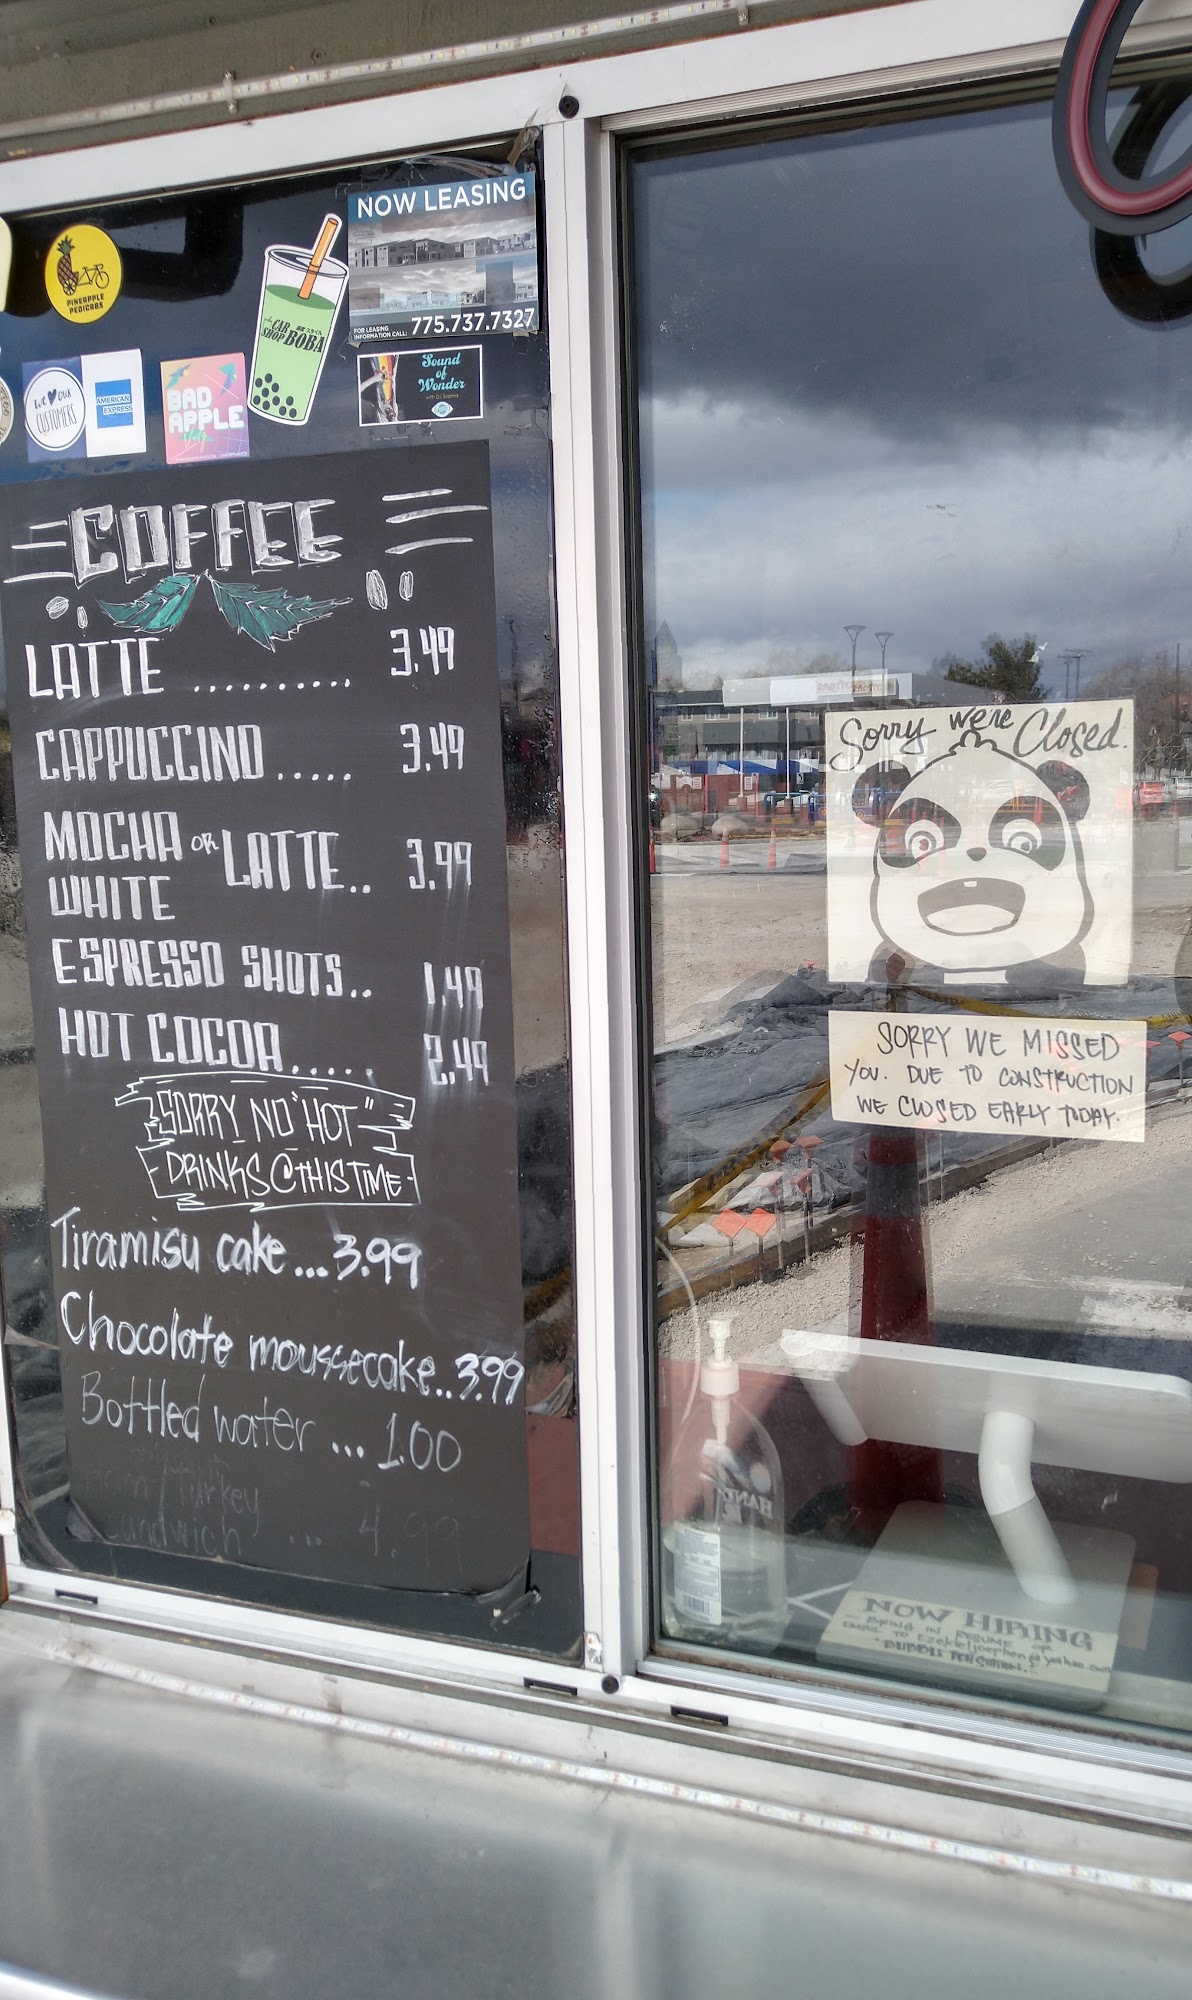 NOW LEASING
FOR LEASING
INFORMATION CALL: 775.737.7327
PINEAPPLE
PEDICABS
CAR
SHOP BOBA
Sound
of
Wonder
We ♥ our
CUSTOMERS
AMERICAN
EXPRESS
BAD
APPLE
COFFEE
LATTE .......... 3.49
CAPPUCCINO ..... 3.49
MOCHA OR LATTE.. 3.99
WHITE
ESPRESSO SHOTS.. 1.49
HOT COCOA..... 2.49
SORRY NO "HOT"
DRINKS @ THIS TIME
Tiramisu cake... 3.99
Chocolate moussecake.. 3.99
Bottled water ... 1.00
Ham/Turkey
Sandwich ... 4.99
Sorry we're Closed.
SORRY WE MISSED
YOU. DUE TO CONSTRUCTION
WE CLOSED EARLY TODAY.
HAND
NOW HIRING
BRING IN RESUME OR
EMAIL TO
"BUBBLE TEA STATION"